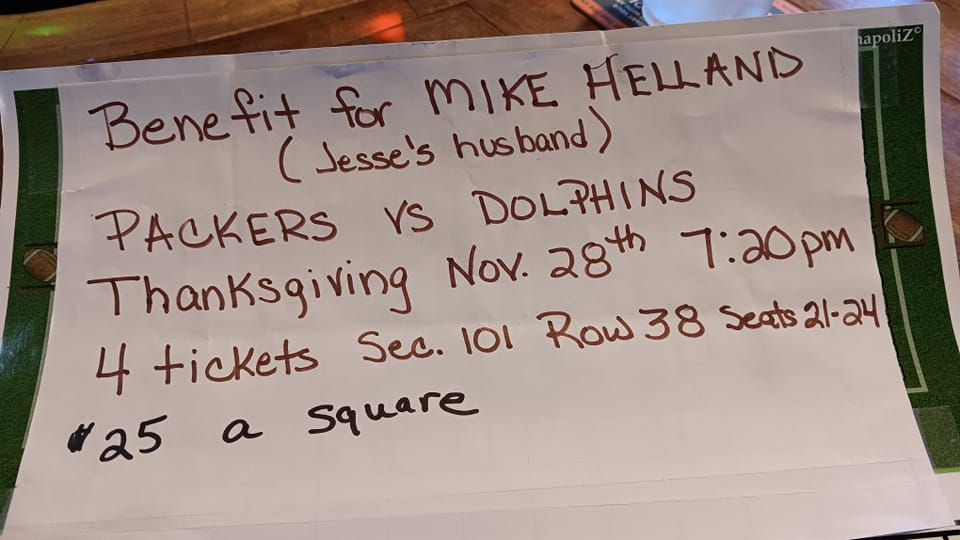 napoliZ®
Benefit for MIKE HELLAND
(Jesse's husband)
PACKERS VS DOLPHINS
Thanksgiving Nov. 28th 7:20pm
4 tickets Sec. 101 Row 38 Seats 21-24
$25 a square